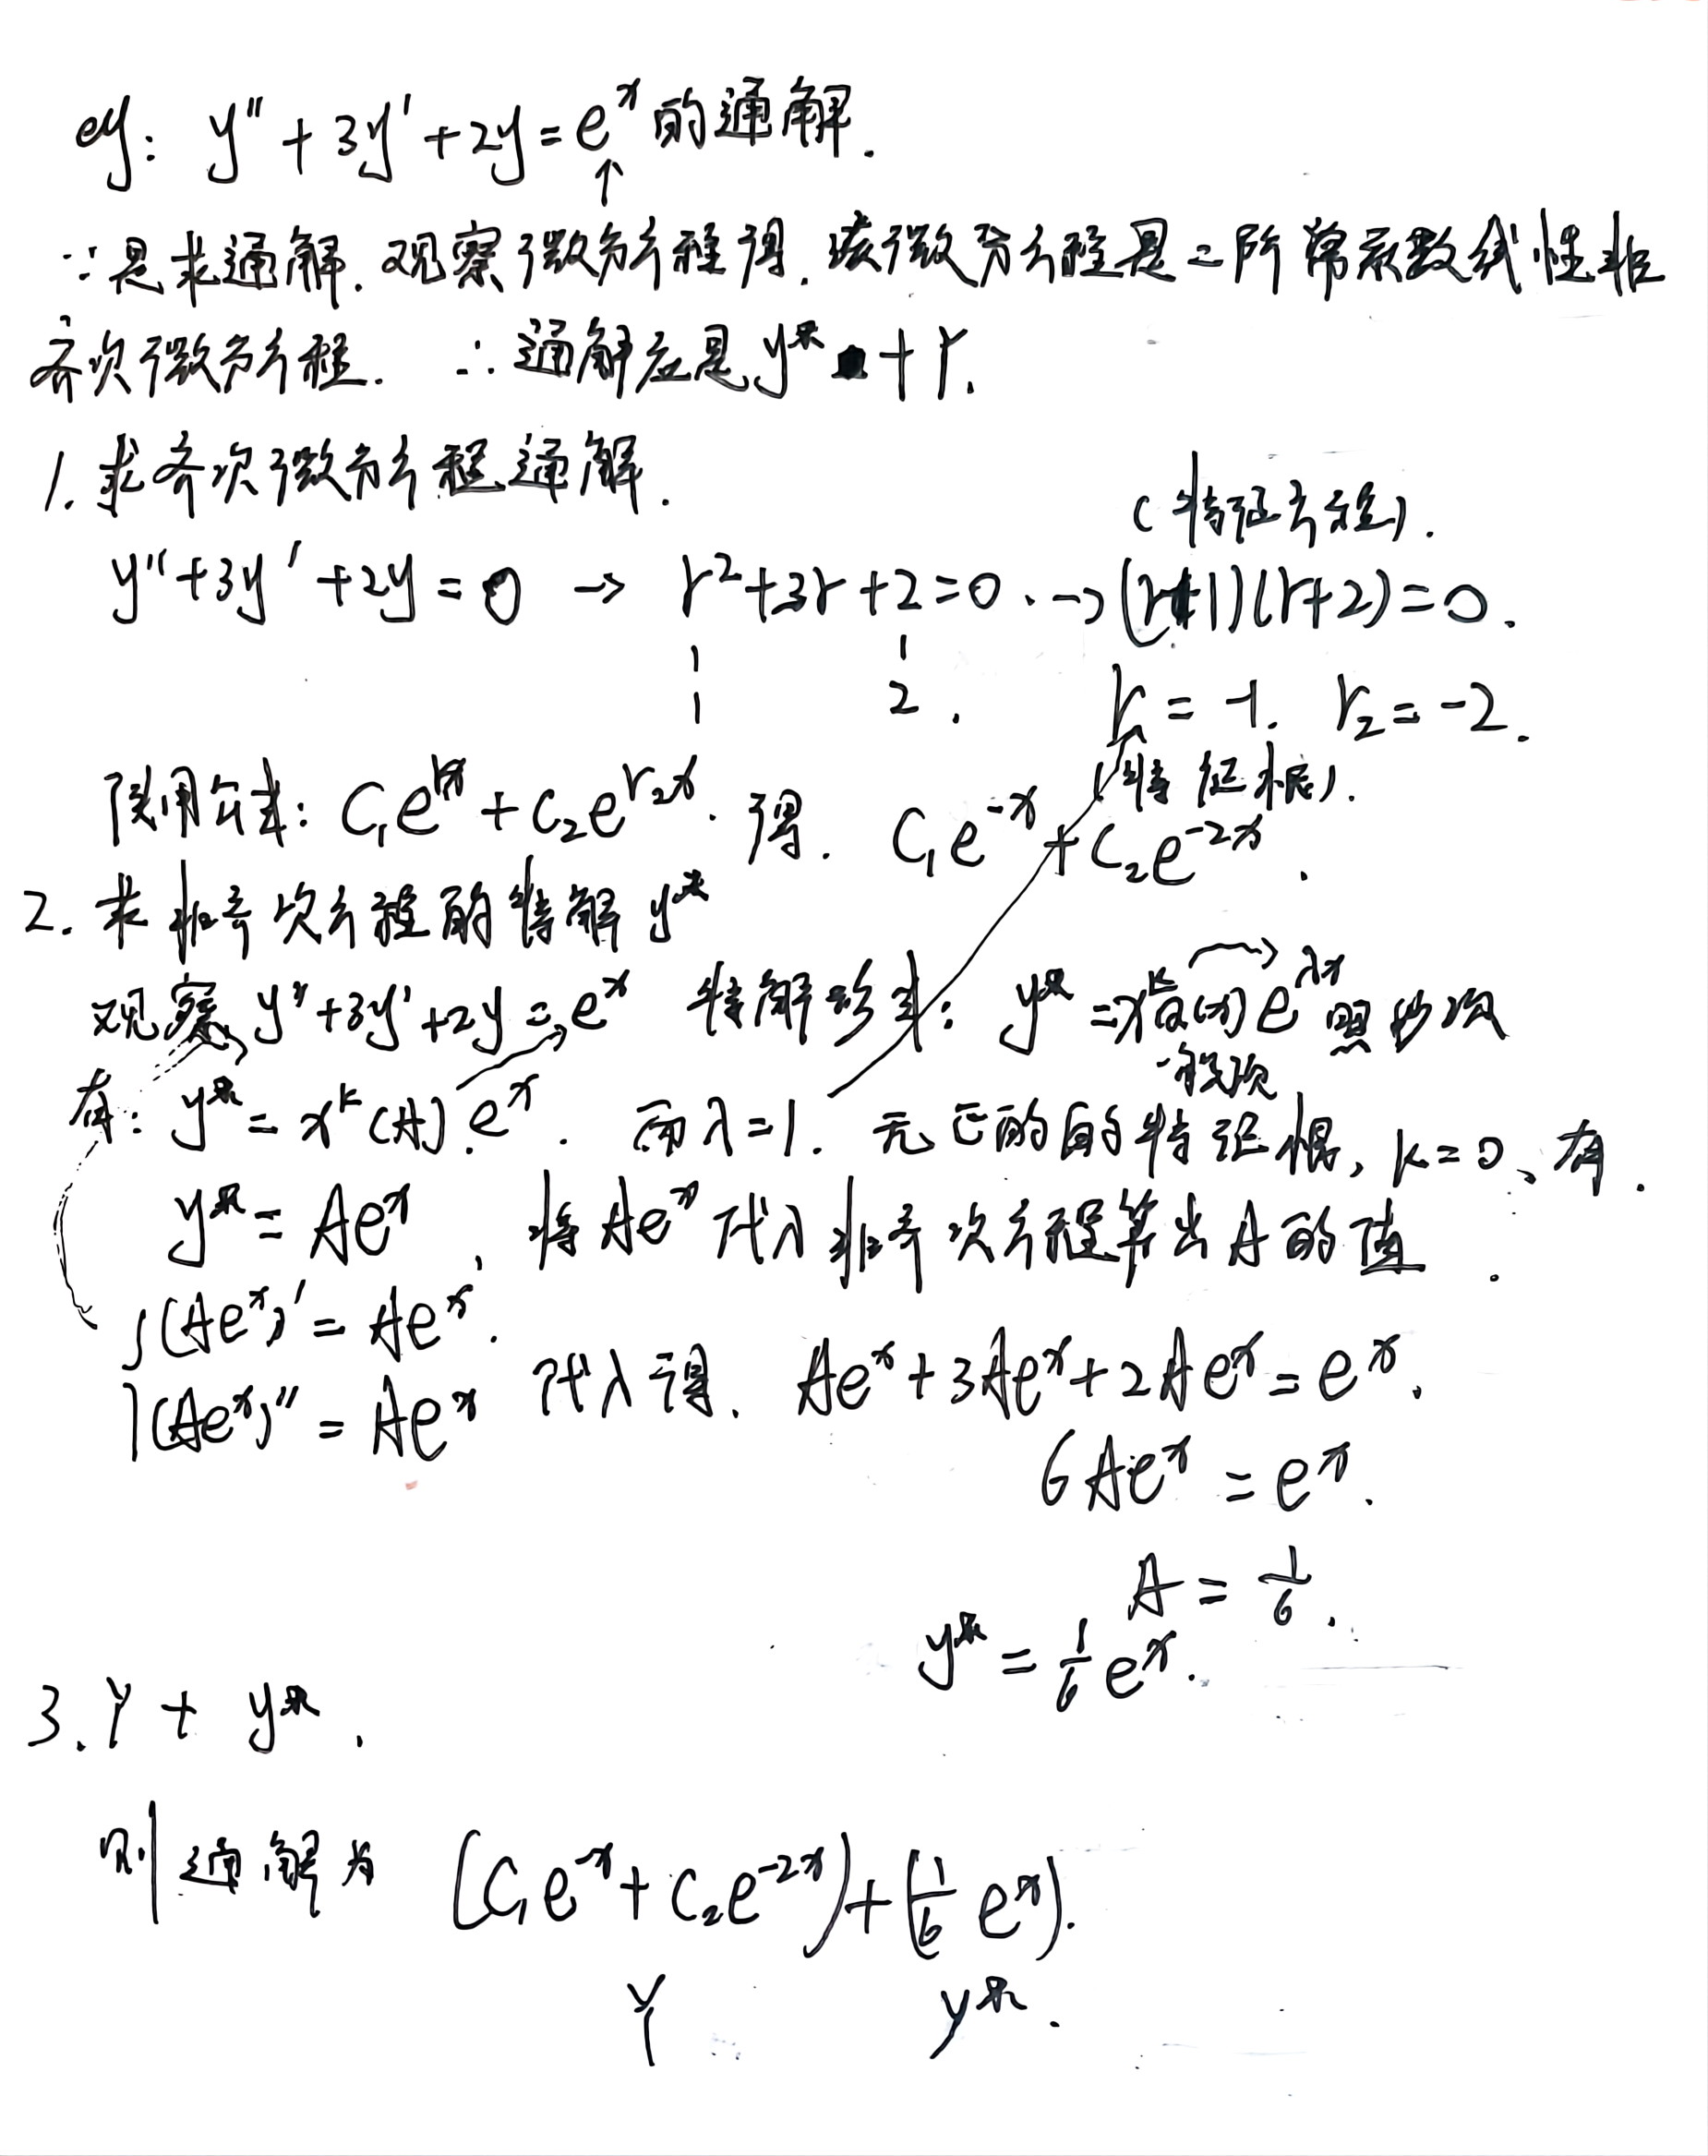 eg: y″ + 3y′ + 2y = eˣ 的通解.
↑
∵是求通解. 观察微分方程得. 该微分方程是二阶常系数线性非
齐次微分方程. ∴ 通解应是 y* + Y.
1. 求齐次微分方程通解.
(特征方程).
y″ + 3y′ + 2y = 0 → r² + 3r + 2 = 0. → (r+1)(r+2) = 0.
1 2. r₁ = -1. r₂ = -2.
(特征根).
用公式: C₁e^{r₁x} + C₂e^{r₂x}. 得. C₁e^{-x} + C₂e^{-2x}.
2. 求非齐次方程的特解 y*
观察 y″ + 3y′ + 2y = eˣ 特解形式: y* = xᵏQ(x)e^{λx} 照抄项
设项
有: y* = xᵏ(A).eˣ. 而λ=1. 无 的特征根, k=0, 有.
y* = Aeˣ, 将Aeˣ代入非齐次方程算出A的值.
{(Aeˣ)′ = Aeˣ.
(Aeˣ)″ = Aeˣ 代入得. Aeˣ + 3Aeˣ + 2Aeˣ = eˣ.
6Aeˣ = eˣ.
A = 1/6.
y* = 1/6 eˣ.
3. Y + y*.
则通解为 (C₁e^{-x} + C₂e^{-2x}) + (1/6 eˣ).
Y y*.